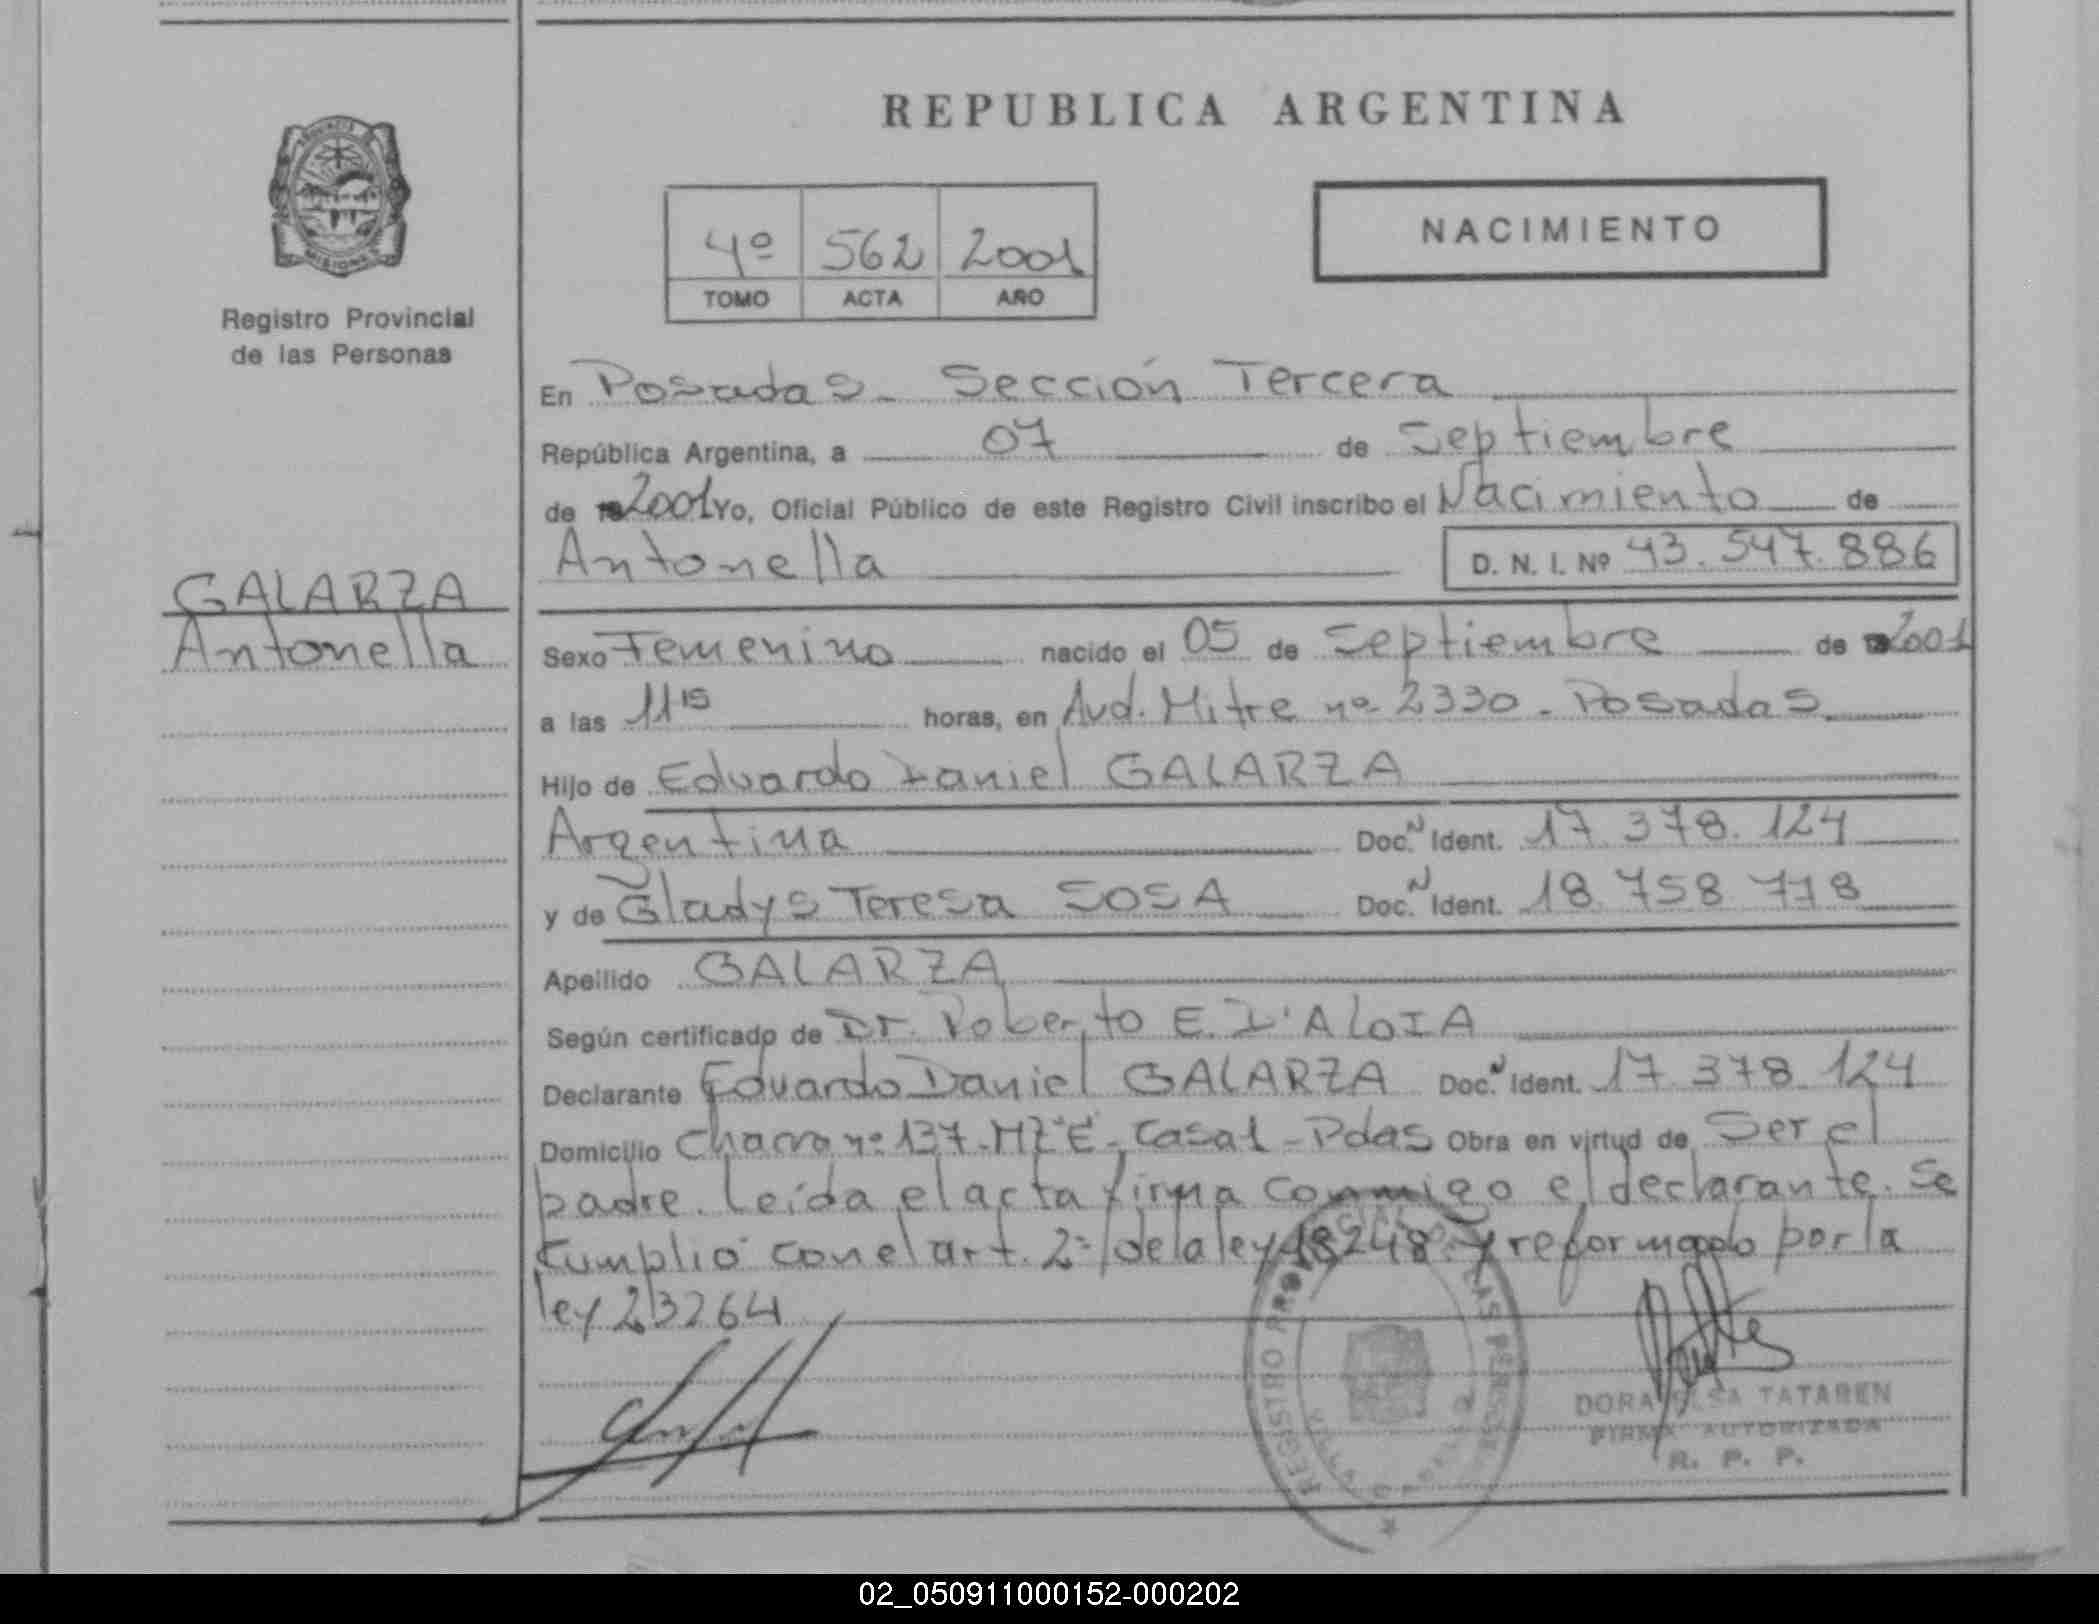 REPUBLICA ARGENTINA
NACIMIENTO
4º 562 2001
TOMO ACTA AÑO
PROVINCIA
MISIONES
Registro Provincial
de las Personas
GALARZA
Antonella
En Posadas - Sección Tercera
República Argentina, a 07 de Septiembre
de 2001 Yo, Oficial Público de este Registro Civil inscribo el Nacimiento de
Antonella D. N. I. Nº 43.547.886
Sexo Femenino nacido el 05 de Septiembre de 2001
a las 11 15 horas, en Avd. Mitre nº 2330 - Posadas
Hijo de Eduardo Daniel GALARZA
Argentina Doc. N Ident. 17.378.124
y de Gladys Teresa SOSA Doc. N Ident. 18.758.718
Apellido GALARZA
Según certificado de Dr. Roberto E. D'ALOIA
Declarante Eduardo Daniel GALARZA Doc. N Ident. 17.378.124
Domicilio Chacra nº 137-MZ"E"-Casa1-Pdas Obra en virtud de Ser el
padre. Leída el acta firma conmigo el declarante. Se
cumplió con el art. 2º de la ley 18248. y reformado por la
ley 23264
REGISTRO PROVINCIAL DE LAS PERSONAS
DORA ELSA TATAREN
FIRMA AUTORIZADA
R. P. P.
02_050911000152-000202